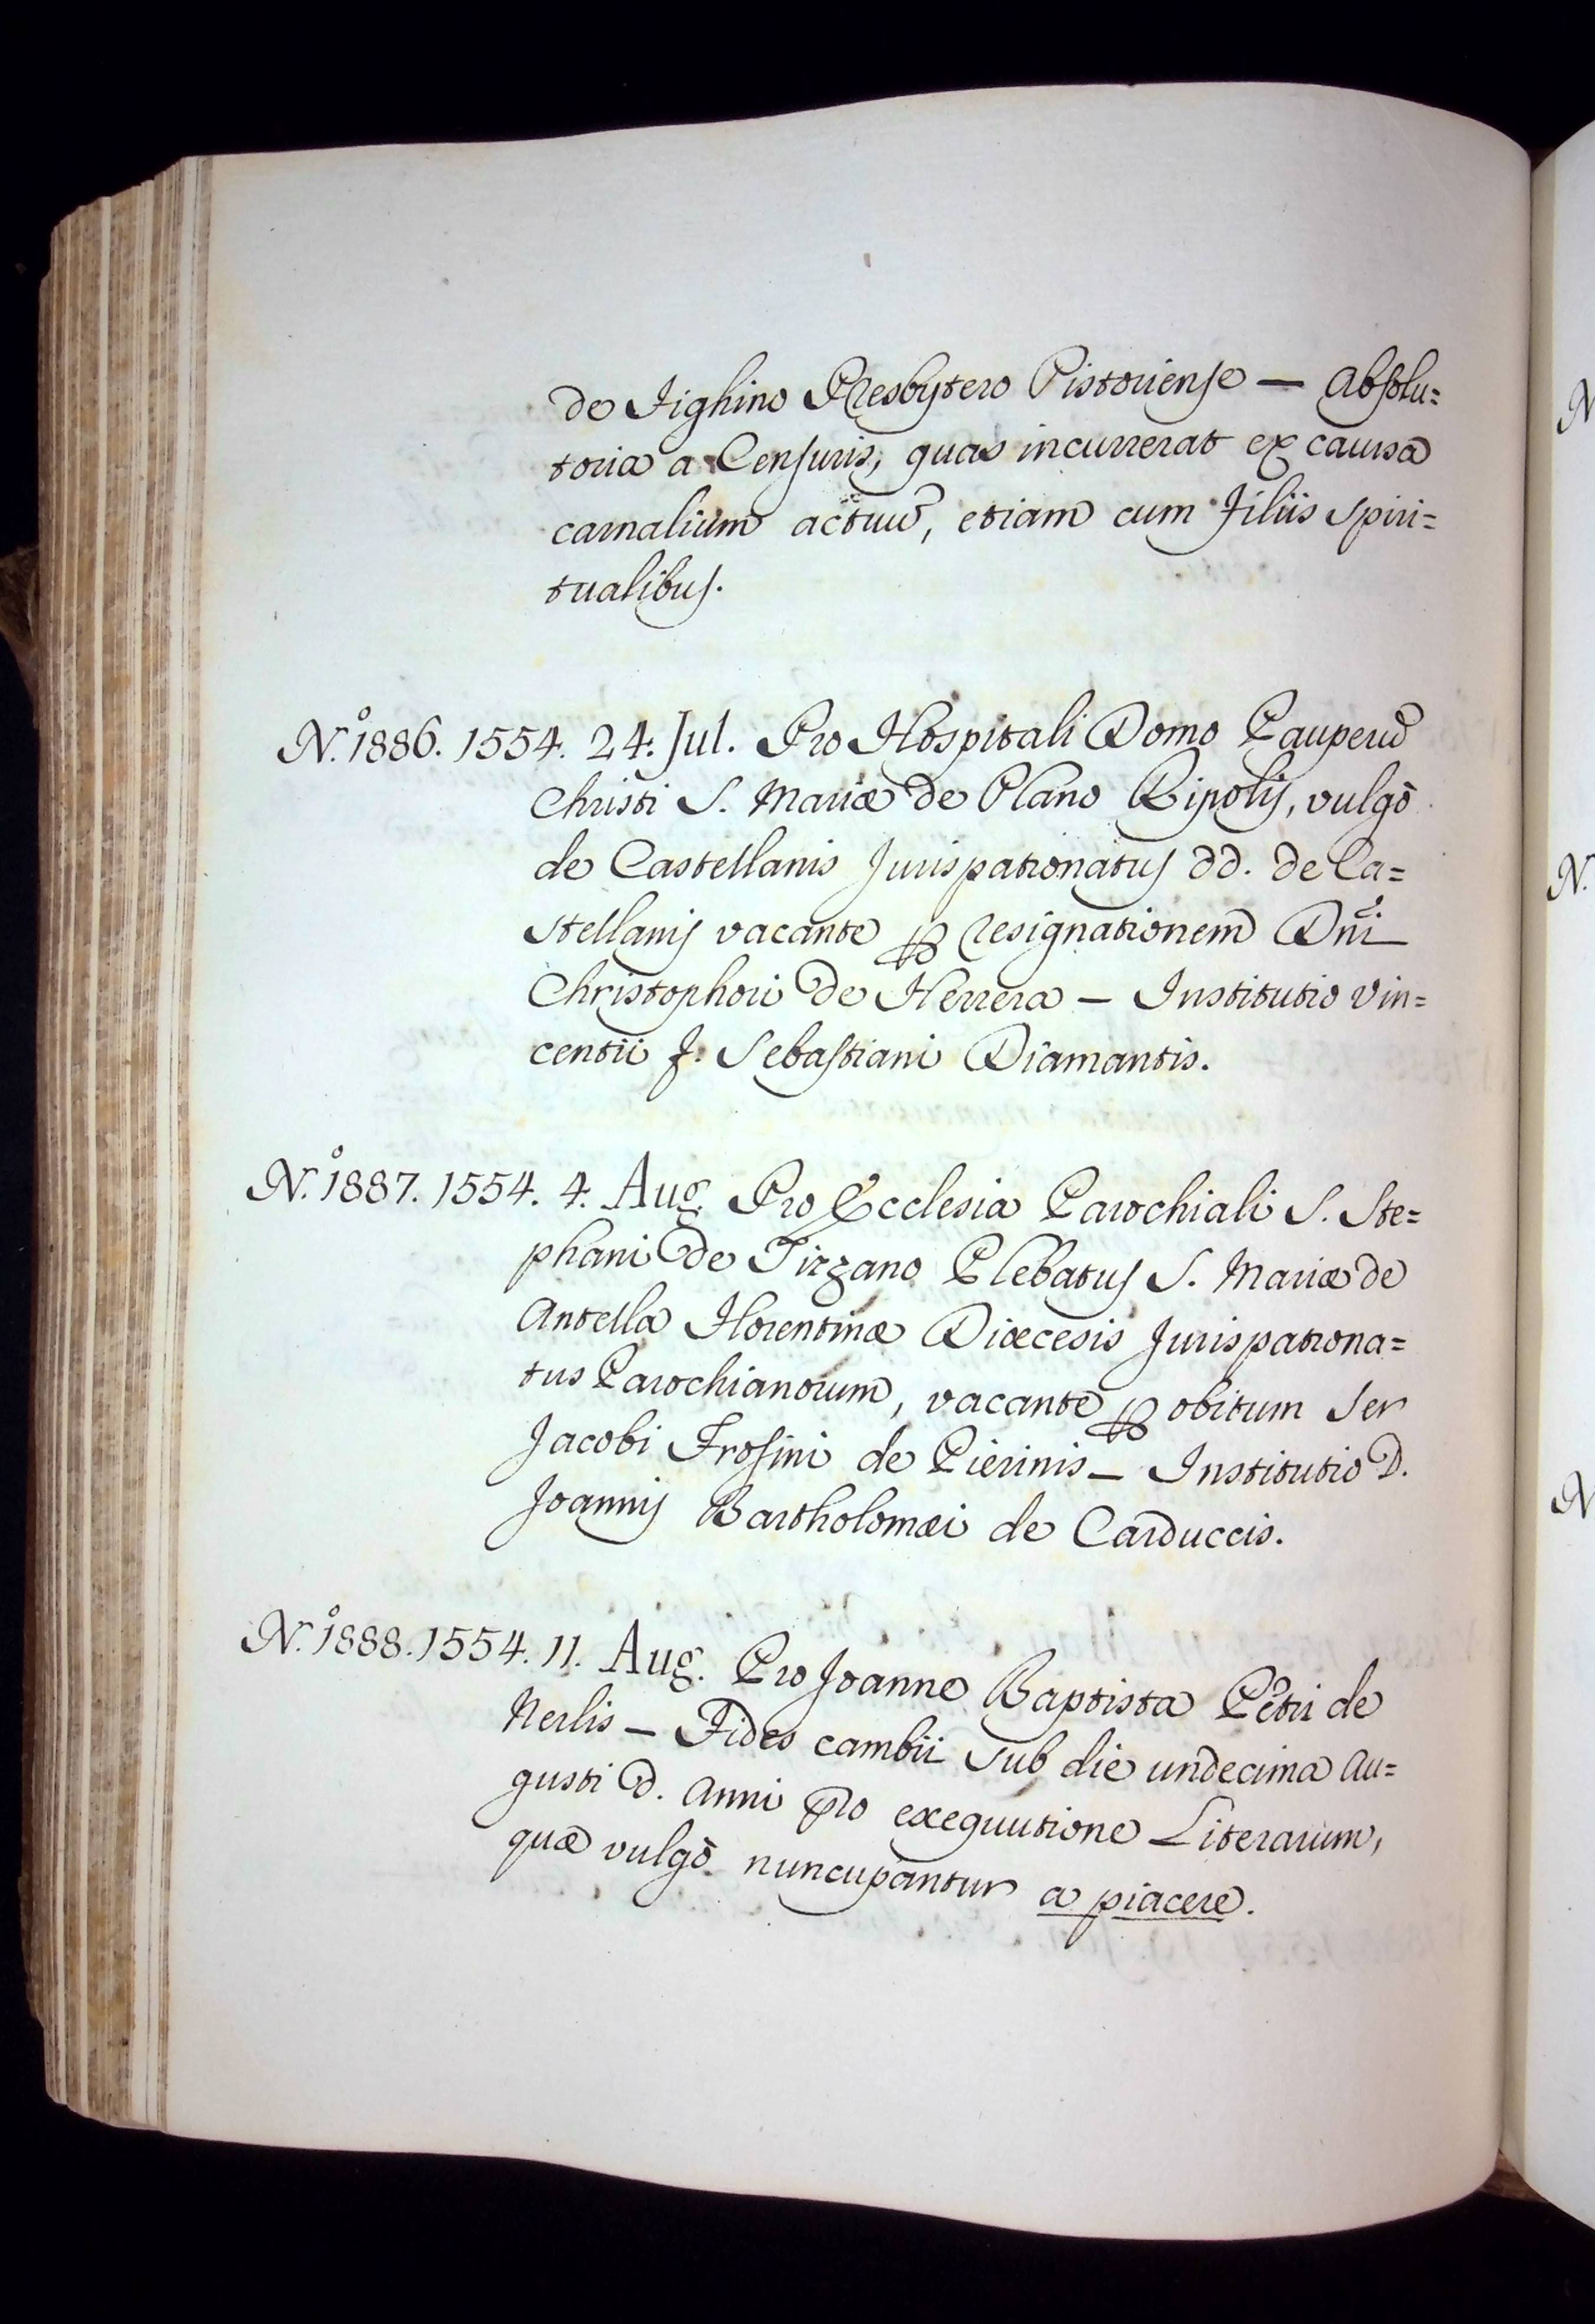 de Fighino Presbytero Pistoriense — Absolu=
toria a Censuris, quas incurrerat ex causa
carnalium actuũ, etiam cum Filiis spiri=
tualibus.
N.º 1886. 1554. 24. Jul. Pro Hospitali Domo Pauperũ
Christi S. Mariæ de Plano Ripolis, vulgò
de Castellanis Jurispatronatus DD. de Ca=
stellanis vacante ꝑ resignationem Dñi
Christophori de Herrera — Institutio Vin=
centii f. Sebastiani Diamantis.
N.º 1887. 1554. 4. Aug. Pro Ecclesia Parochiali S. Ste=
phani de Tizzano Plebatus S. Mariæ de
Antella Florentinæ Diœcesis Jurispatrona=
tus Parochianorum, vacante ꝑ obitum Ser
Jacobi Frosini de Pierinis — Institutio D.
Joannis Bartholomæi de Carduccis.
N.º 1888. 1554. 11. Aug. Pro Joanne Baptista Petri de
Nerlis — Fides cambii sub die undecima Au=
gusti d. Anni pro exequutione Literarum,
quæ vulgò nuncupantur a piacere.
N
N.
N